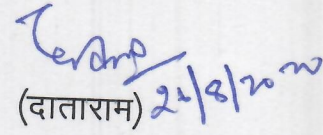 (दाताराम) 24/8/2020